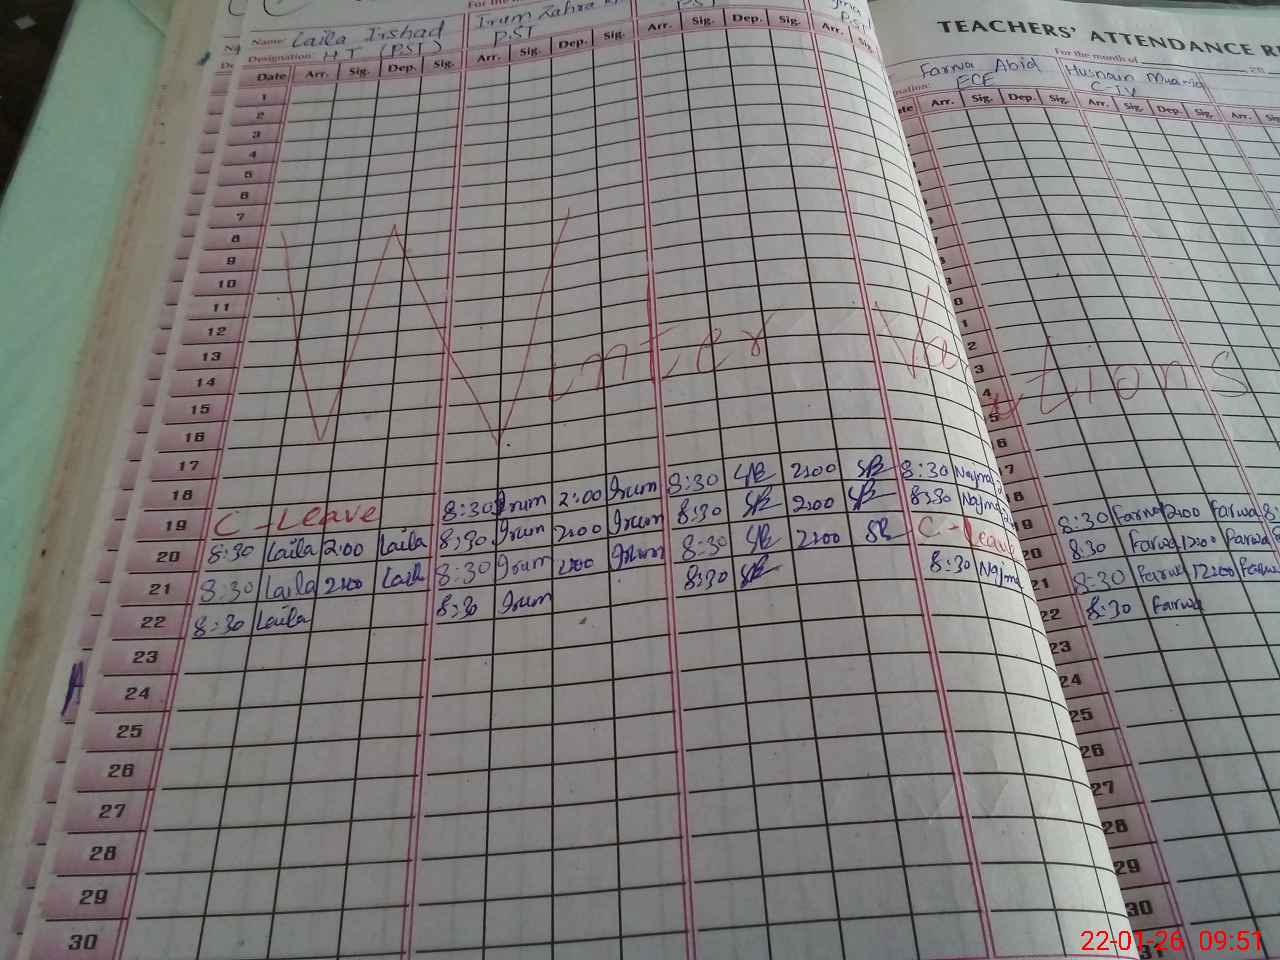 TEACHERS' ATTENDANCE R
For the month of 20
Name: Laila Irshad Irum Zahra
Designation: H.T (PST) PST PST P.S
Farwa Abid Husnain
ECE C-IV
Date Arr. Sig. Dep. Sig. Arr. Sig. Dep. Sig. Arr. Sig. Dep. Sig. Arr. Arr. Sig. Dep. Sig. Arr. Sig. Dep. Sig. Arr.
1
2
3
4
5
6
7
8
9
10
11
12
13
14
15
16
Winter Va tions
17
18
19 C-Leave 8:30 Irum 2:00 Irum 8:30 SB 2:00 SB 8:30 Najma 19 8:30 Farwa 12:00 Farwa
20 8:30 Laila 2:00 Laila 8:30 Irum 2:00 Irum 8:30 SB 2:00 SB 8:30 Najma 20 8:30 Farwa 12:00 Farwa
21 8:30 Laila 2:00 Laila 8:30 Irum 2:00 Irum 8:30 SB 2:00 SB C-Leave 21 8:30 Farwa 12:00 Farwa
22 8:30 Laila 8:30 Irum 8:30 SB 8:30 Najma 22 8:30 Farwa
23 23
24 24
25 25
26 26
27 27
28 28
29 29
30 30
31
22-01-26 09:51